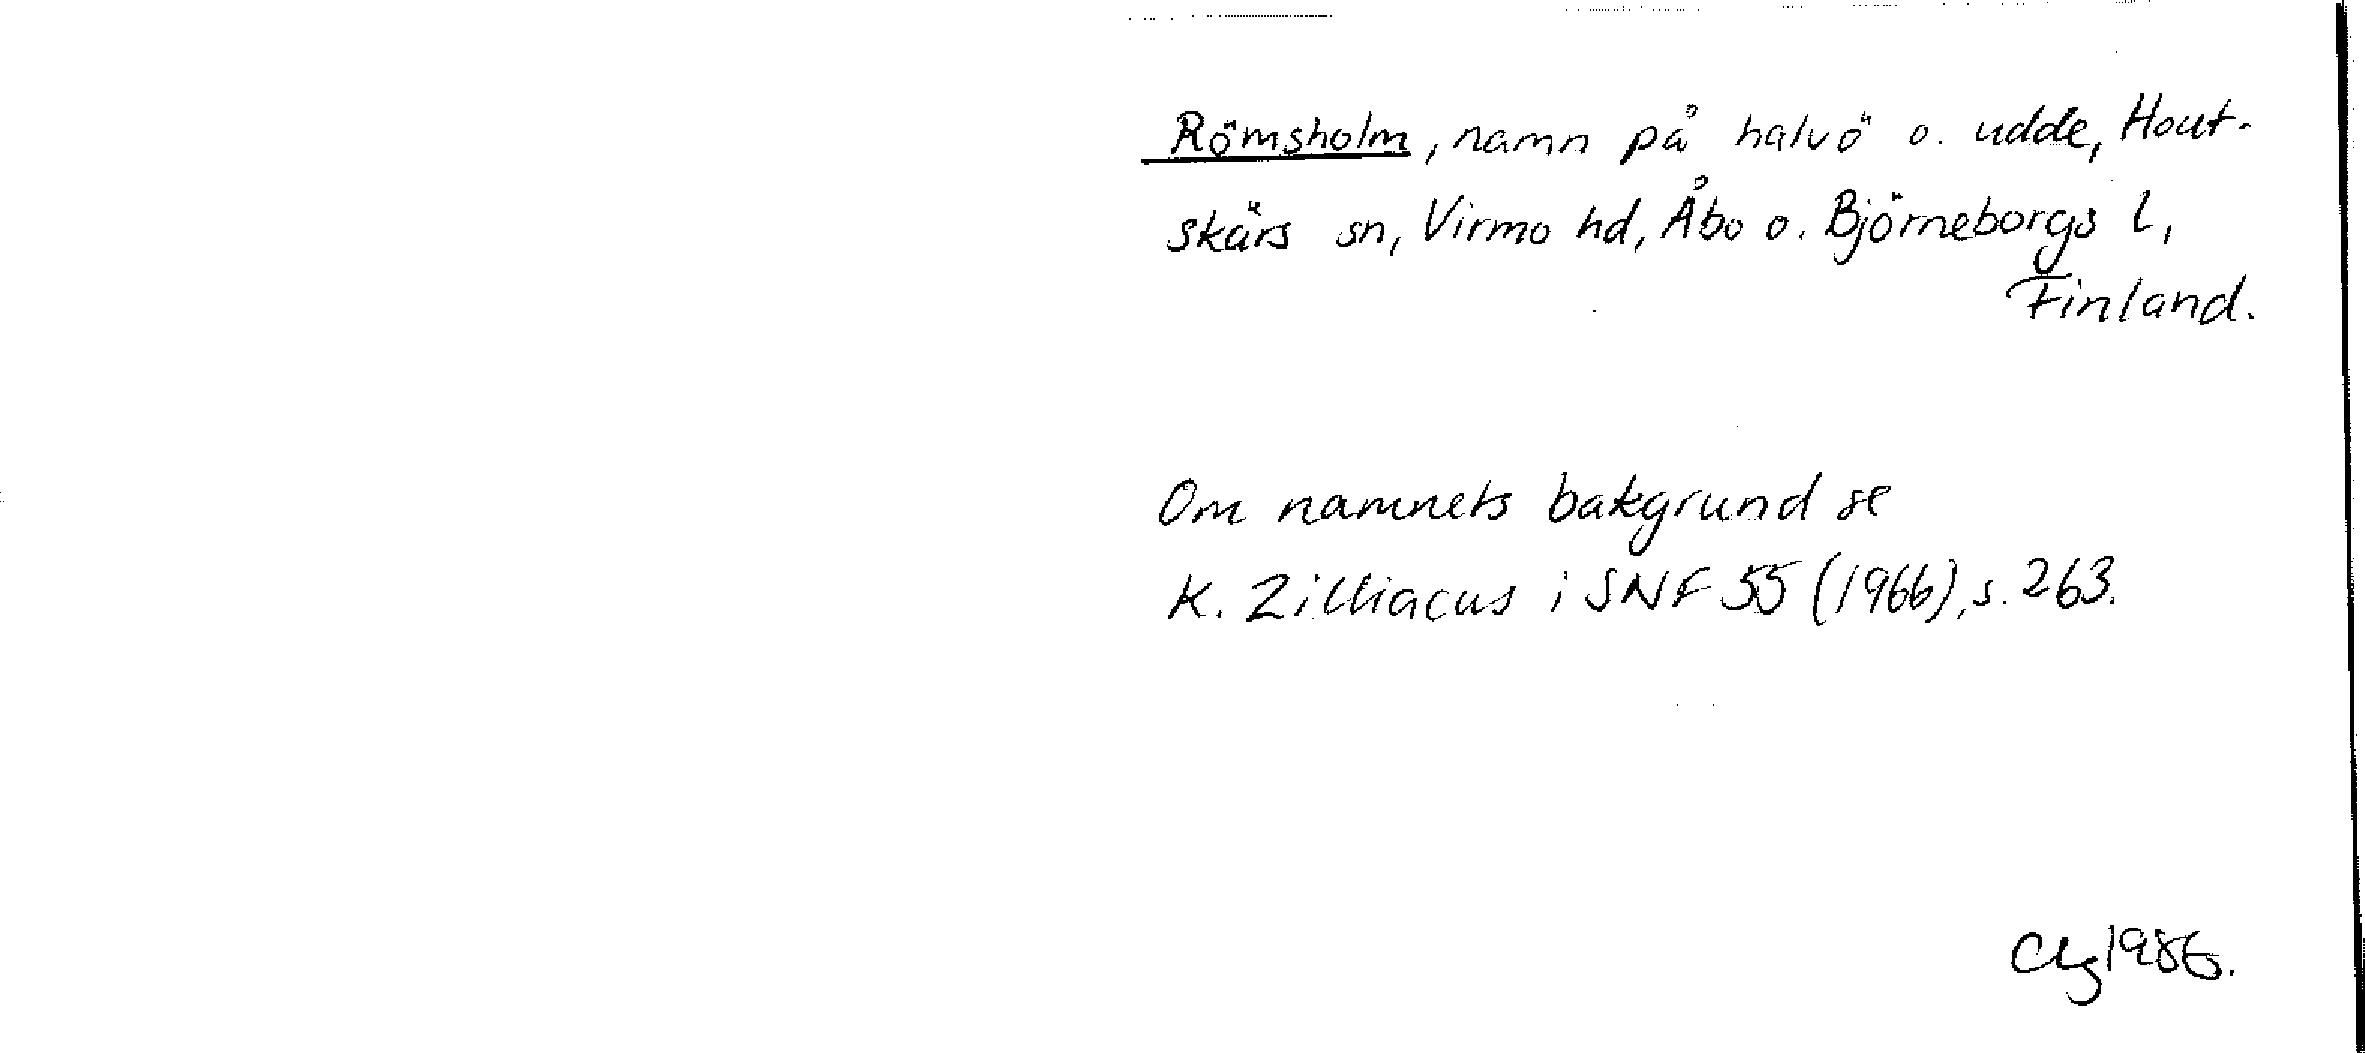 Römsholm, namn på halvö o. udde, Hout-
skärs sn, Virmo hd, Åbo o. Björneborgs l,
Finland.
Om namnets bakgrund se
K. Zilliacus i SNF 55 (1966), s. 263.
1986.